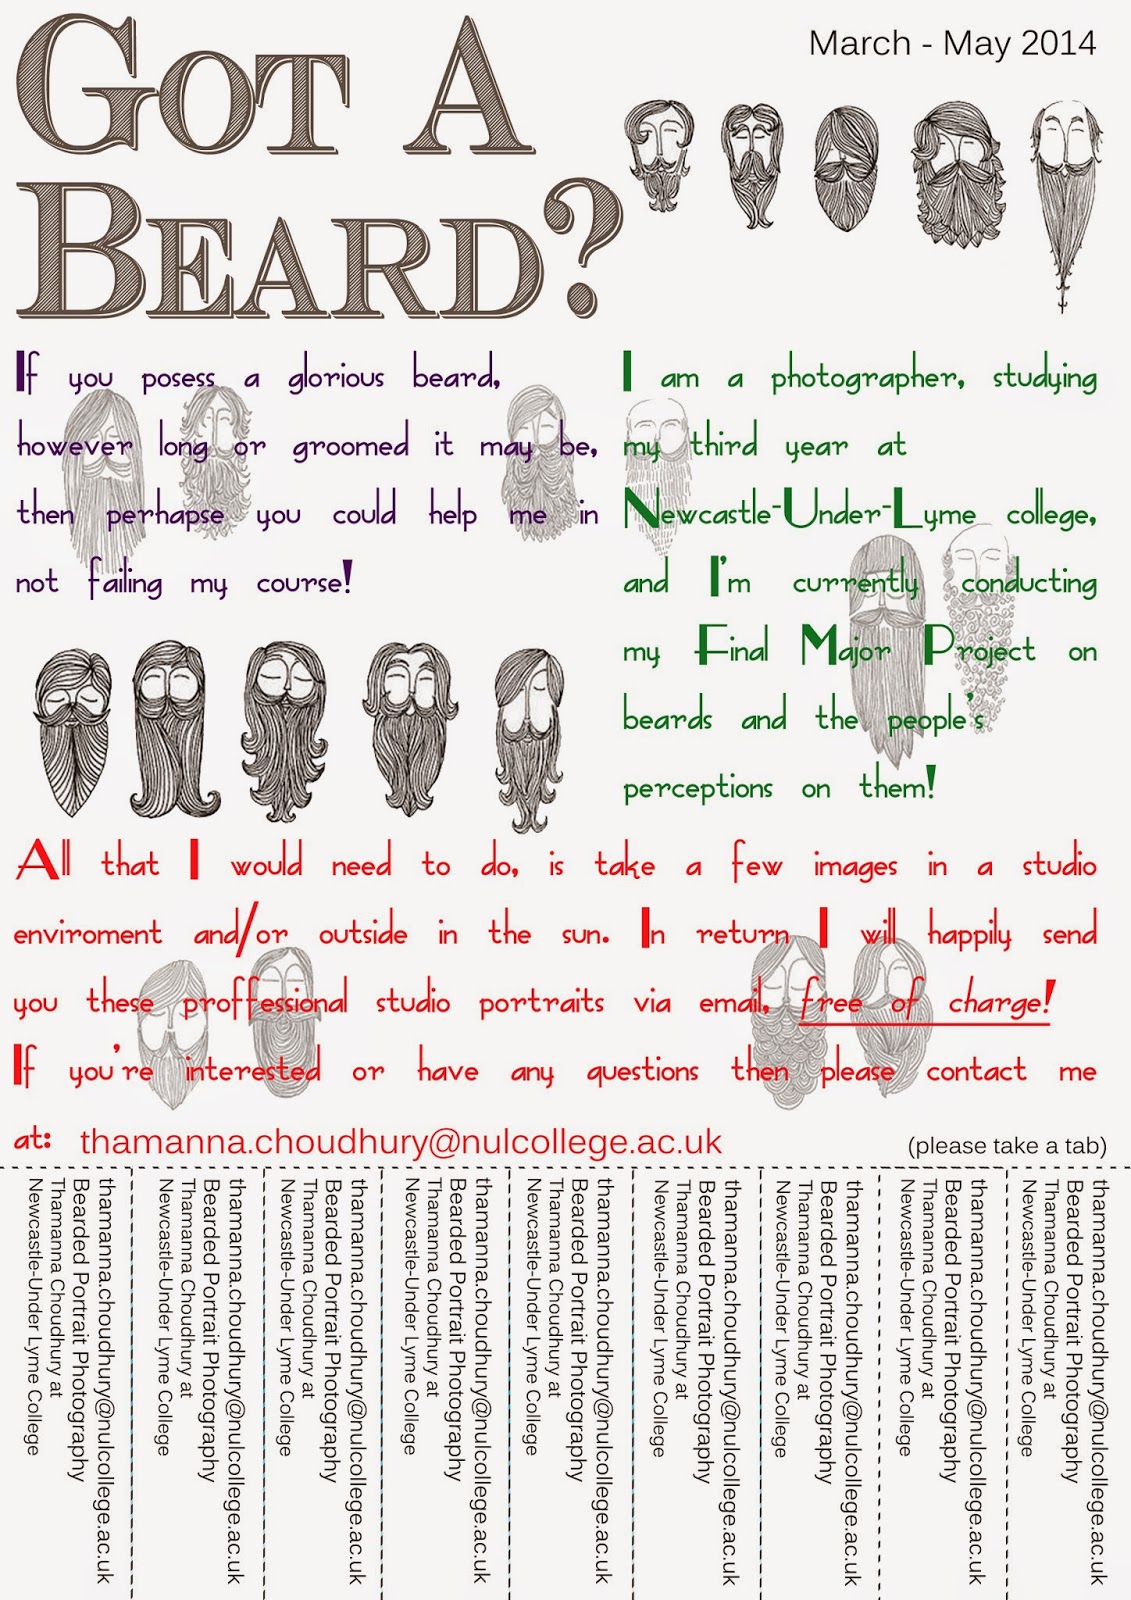 GOT A
BEARD?
March - May 2014
If you posess a glorious beard,
however long or groomed it may be,
then perhapse you could help me in
not failing my course!
I am a photographer, studying
my third year at
Newcastle-Under-Lyme college,
and I'm currently conducting
my Final Major Project on
beards and the people's
perceptions on them!
All that I would need to do, is take a few images in a studio
enviroment and/or outside in the sun. In return I will happily send
you these proffessional studio portraits via email, free of charge!
If you're interested or have any questions then please contact me
at: thamanna.choudhury@nulcollege.ac.uk
(please take a tab)
thamanna.choudhury@nulcollege.ac.uk
Bearded Portrait Photography
Thamanna Choudhury at
Newcastle-Under Lyme College
thamanna.choudhury@nulcollege.ac.uk
Bearded Portrait Photography
Thamanna Choudhury at
Newcastle-Under Lyme College
thamanna.choudhury@nulcollege.ac.uk
Bearded Portrait Photography
Thamanna Choudhury at
Newcastle-Under Lyme College
thamanna.choudhury@nulcollege.ac.uk
Bearded Portrait Photography
Thamanna Choudhury at
Newcastle-Under Lyme College
thamanna.choudhury@nulcollege.ac.uk
Bearded Portrait Photography
Thamanna Choudhury at
Newcastle-Under Lyme College
thamanna.choudhury@nulcollege.ac.uk
Bearded Portrait Photography
Thamanna Choudhury at
Newcastle-Under Lyme College
thamanna.choudhury@nulcollege.ac.uk
Bearded Portrait Photography
Thamanna Choudhury at
Newcastle-Under Lyme College
thamanna.choudhury@nulcollege.ac.uk
Bearded Portrait Photography
Thamanna Choudhury at
Newcastle-Under Lyme College
thamanna.choudhury@nulcollege.ac.uk
Bearded Portrait Photography
Thamanna Choudhury at
Newcastle-Under Lyme College